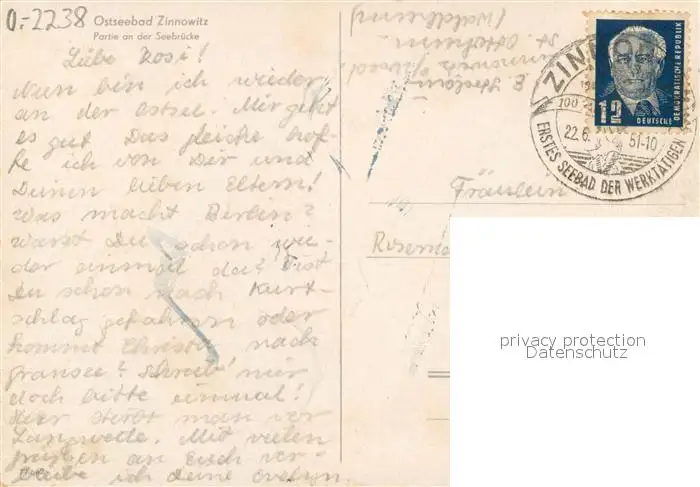 0.-2238
Ostseebad Zinnowitz
Partie an der Seebrücke
Liebe Rosi!
Nun bin ich wieder
an der Ostsee. Mir geht
es gut. Das gleiche hof-
fe ich von Dir und
Deinen lieben Eltern!
Was macht Berlin?
Warst Du schon wie-
der einmal da? Bist
Du schon nach Kurt-
schlag gefahren oder
kommt Christa nach
Gransee? Schreib' mir
doch bitte einmal!
Hier stirbt man vor
Langweile. Mit vielen
Grüssen an Euch ver-
bleibe ich deine Evelyn.
Zinnowitz
(Waldheim)
ZINNO
22.6. 51-10
ERSTES SEEBAD DER WERKTÄTIGEN
12
DEUTSCHE
DEMOKRATISCHE REPUBLIK
Fräulein
Rosem
privacy protection
Datenschutz